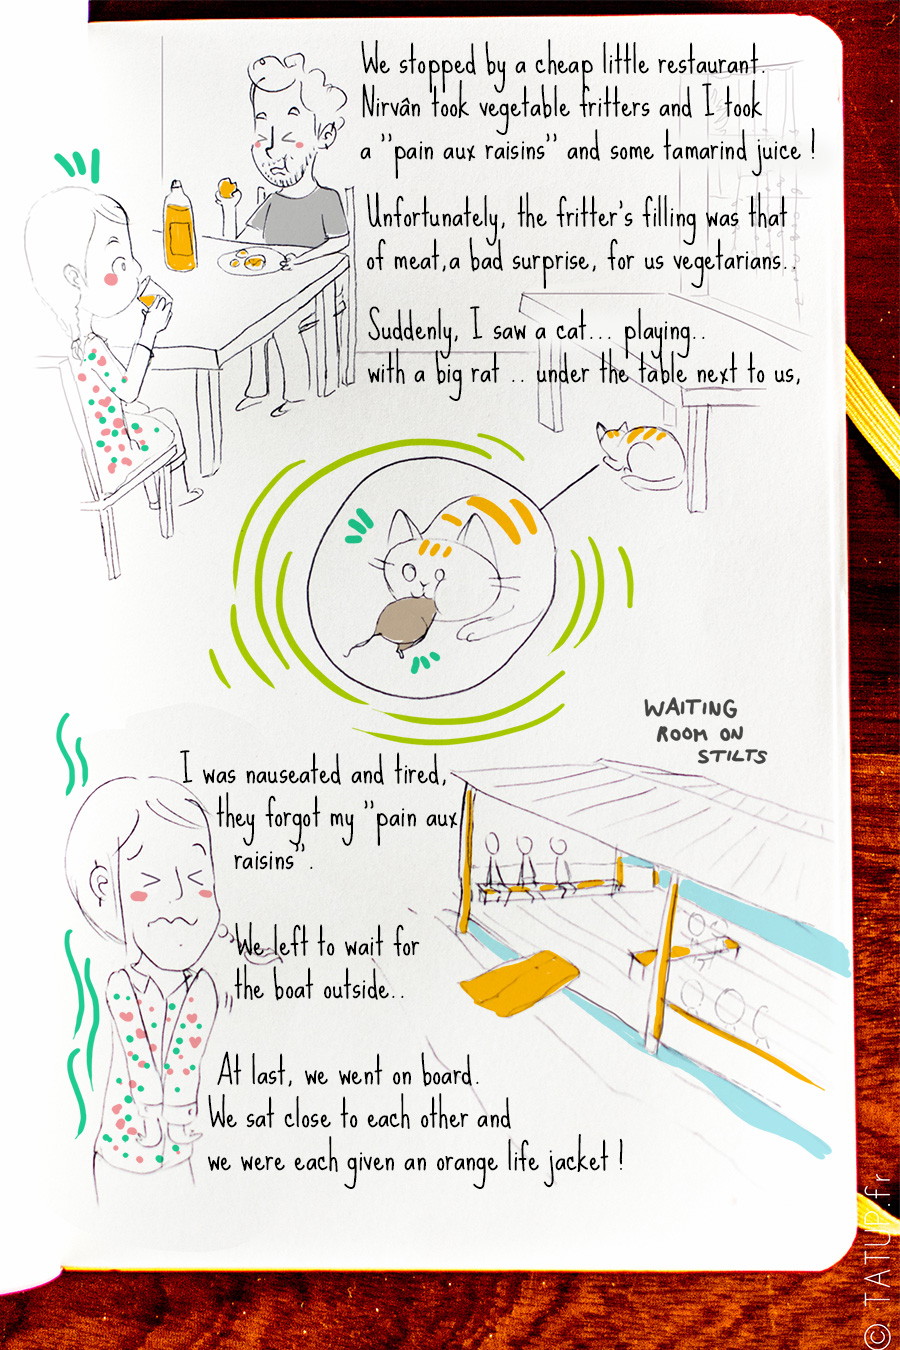 We stopped by a cheap little restaurant.
Nirvân took vegetable fritters and I took
a "pain aux raisins" and some tamarind juice !
Unfortunately, the fritter's filling was that
of meat,a bad surprise, for us vegetarians..
Suddenly, I saw a cat... playing..
with a big rat .. under the table next to us,
WAITING
ROOM ON
STILTS
I was nauseated and tired,
they forgot my "pain aux
raisins".
We left to wait for
the boat outside..
At last, we went on board.
We sat close to each other and
we were each given an orange life jacket !
© TATUP.fr